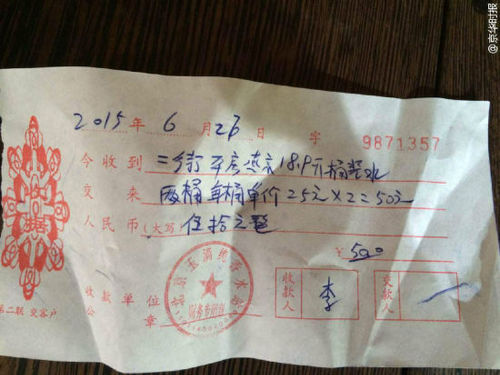 @京华时报
收据
2015年6月26日 字 9871357
今收到 二街平房燕京18.9升桶装水
交来 两桶 每桶单价25元×2=50元
人民币(大写) 伍拾元整
¥ 500
收款单位公章
财务专用章
收款人 李
交款人
第二联 交客户